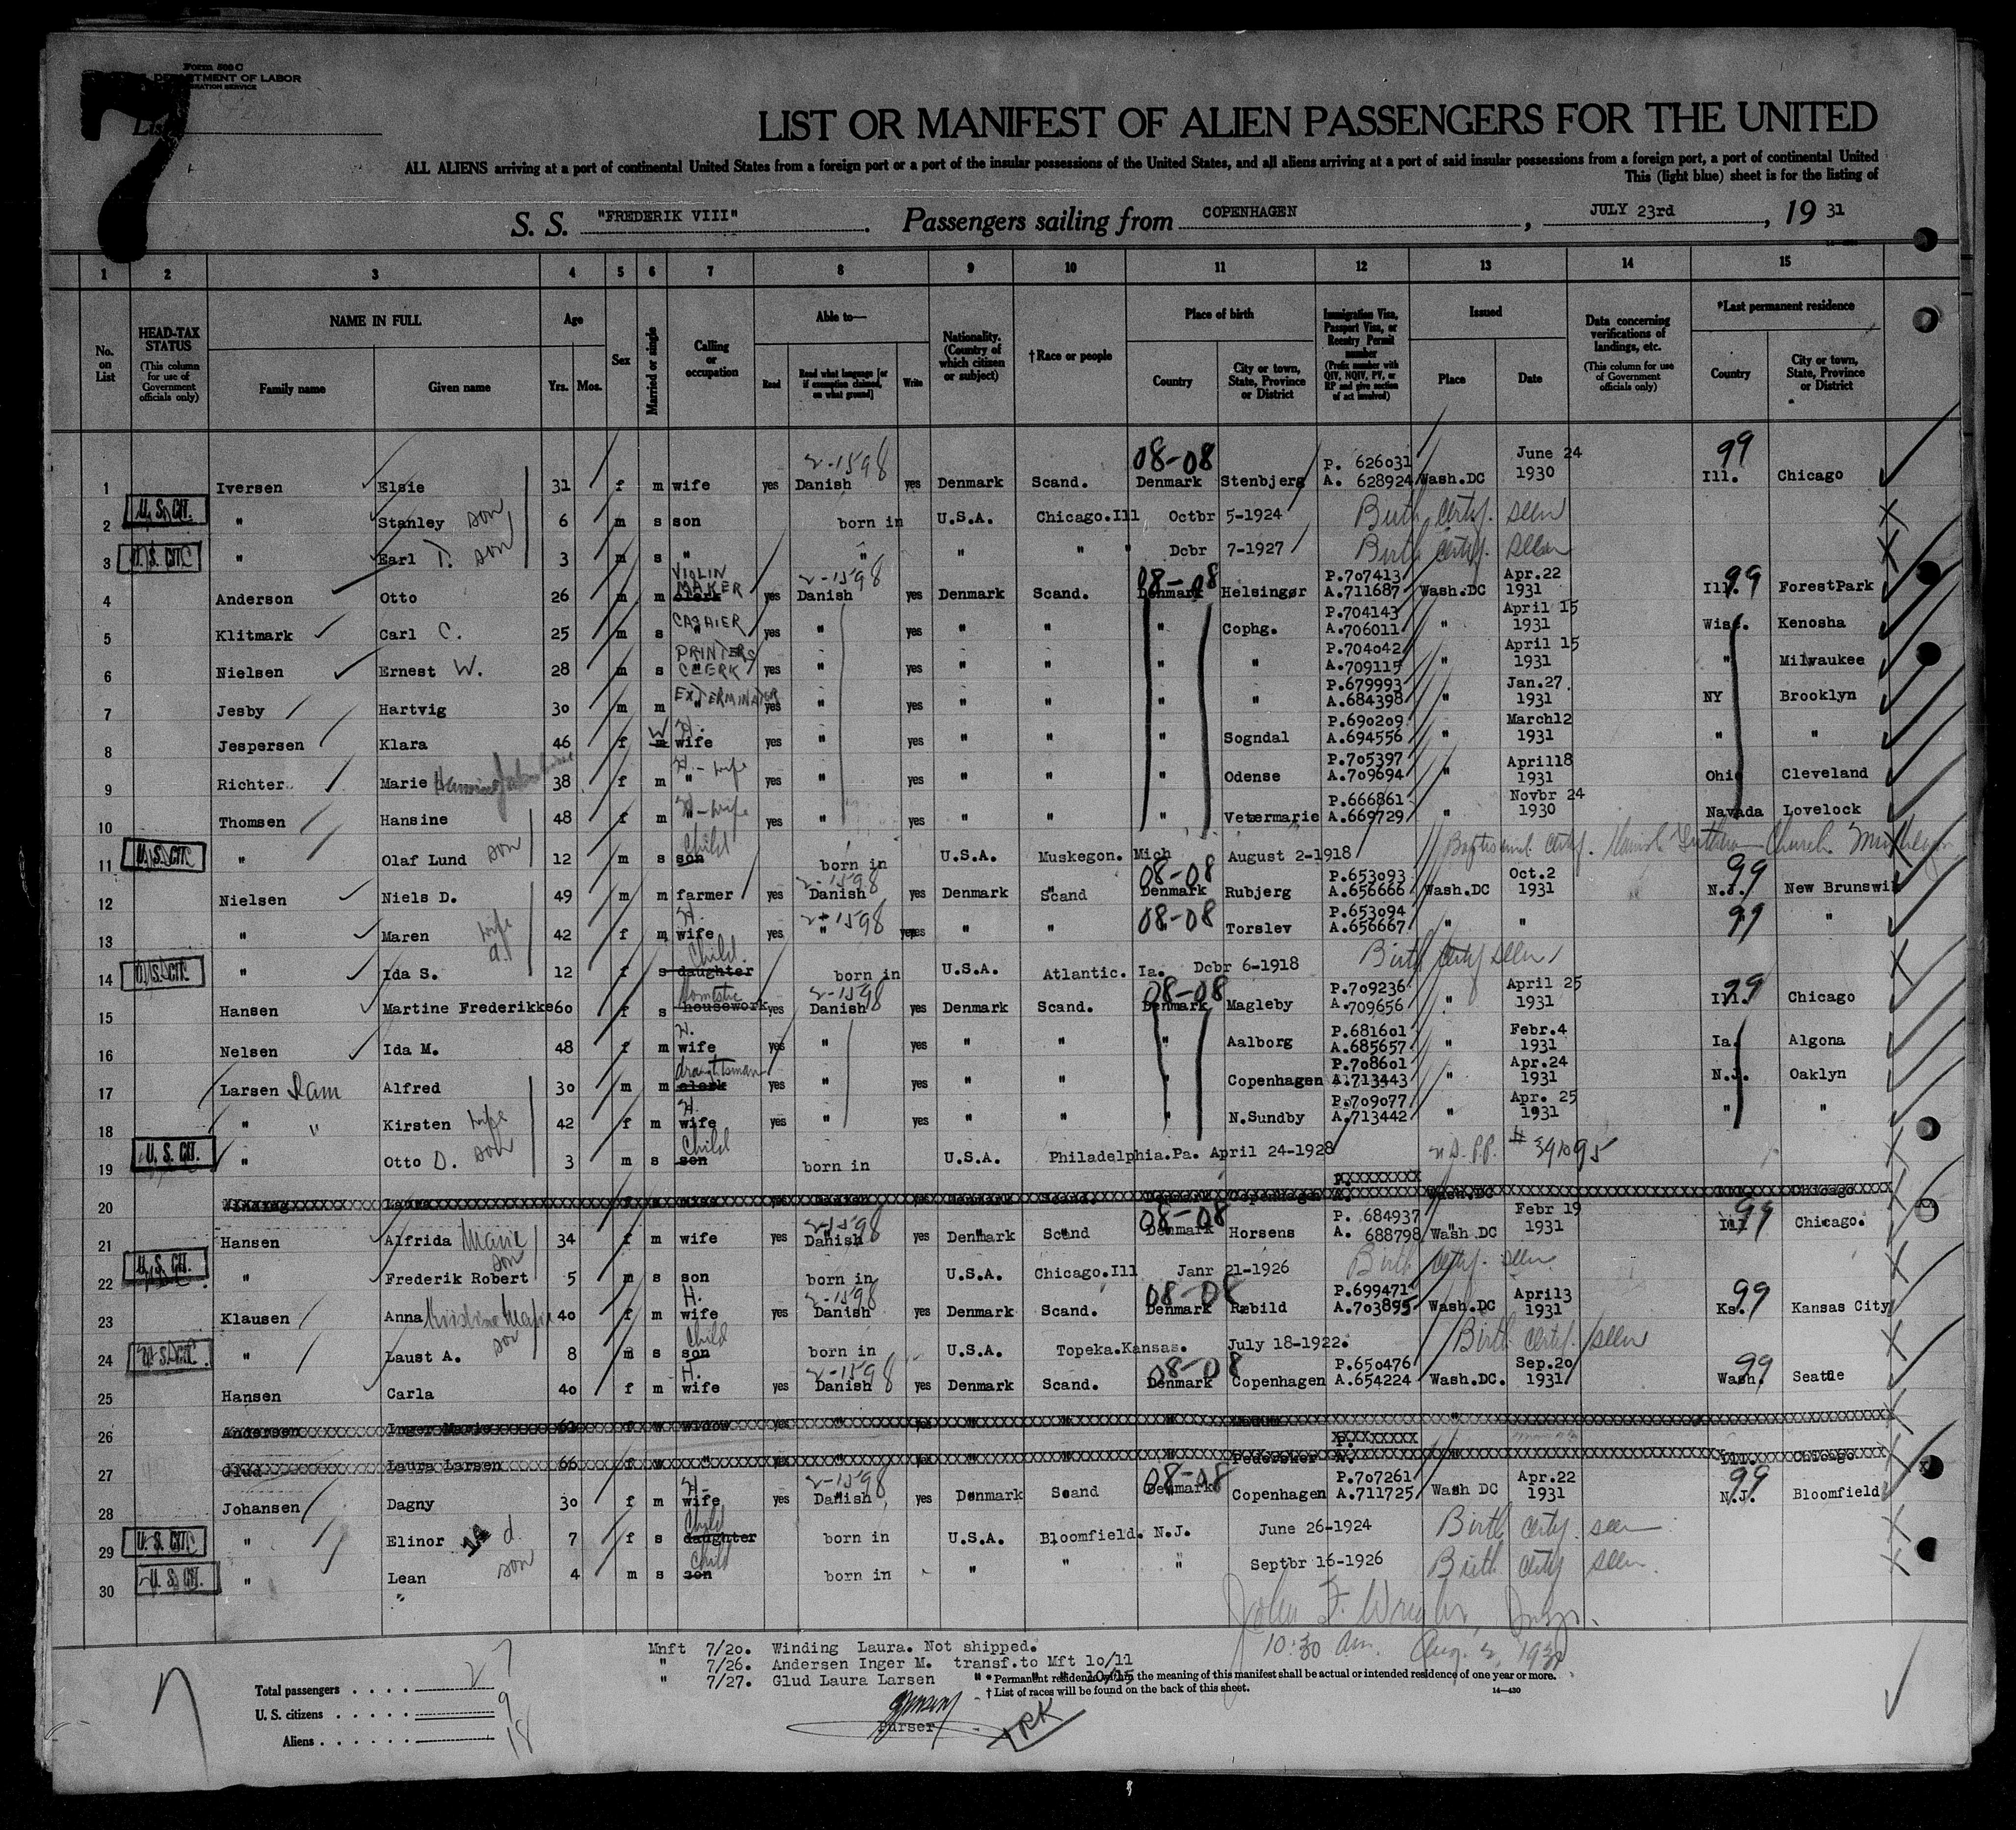 Form 500 C
DEPARTMENT OF LABOR
7
LIST OR MANIFEST OF ALIEN PASSENGERS FOR THE UNITED
ALL ALIENS arriving at a port of continental United States from a foreign port or a port of the insular possessions of the United States, and all aliens arriving at a port of said insular possessions from a foreign port, a port of continental United
This (light blue) sheet is for the listing of
S. S. "FREDERIK VIII". Passengers sailing from COPENHAGEN, JULY 23rd, 19 31
1 2 3 4 5 6 7 8 9 10 11 12 13 14 15
No. on List
HEAD-TAX STATUS (This column for use of Government officials only)
NAME IN FULL Family name Given name
Age Yrs. Mos.
Sex
Married or single
Calling or occupation
Able to— Read Read what language [or if exemption claimed, on what ground] Write
Nationality. (Country of which citizen or subject)
†Race or people
Place of birth Country City or town, State, Province or District
Immigration Visa, Passport Visa, or Reentry Permit number (Prefix number with QIV, NQIV, PV, or RP and give section of act involved)
Issued Place Date
Data concerning verifications of landings, etc. (This column for use of Government officials only)
*Last permanent residence Country City or town, State, Province or District
1 Iversen Elsie 31 f m wife yes 2-1598 Danish yes Denmark Scand. 08-08 Denmark Stenbjerg P. 626031 A. 628924 Wash.DC June 24 1930 99 Ill. Chicago
2 U.S. CIT. " Stanley son 6 m s son born in U.S.A. Chicago.Ill Octbr 5-1924 Birth certf. seen
3 U.S. CIT. " Earl T. son 3 m s " " " " " Dcbr 7-1927 Birth certf. seen
4 Anderson Otto 26 m m clerk VIOLIN MAKER yes 2-1598 Danish yes Denmark Scand. 08-08 Denmark Helsingør P.707413 A.711687 Wash.DC Apr.22 1931 99 Ill. ForestPark
5 Klitmark Carl C. 25 m s " CASHIER yes " yes " " " Cophg. P.704143 A.706011 " April 15 1931 Wisc. Kenosha
6 Nielsen Ernest W. 28 m s " PRINTERS CLERK yes " yes " " " " P.704042 A.709115 " April 15 1931 " Milwaukee
7 Jesby Hartvig 30 m m " EXTERMINATOR yes " yes " " " " P.679993 A.684398 " Jan.27 1931 NY Brooklyn
8 Jespersen Klara 46 f m W H. wife yes " yes " " " Sogndal P.690209 A.694556 " March12 1931 " "
9 Richter Marie 38 f m " H.-wife yes " yes " " " Odense P.705397 A.709694 " April18 1931 Ohio Cleveland
10 Thomsen Hansine 48 f m " H-wife yes " yes " " " Vetermarie P.666861 A.669729 " Novbr 24 1930 Navada Lovelock
11 U.S. CIT. " Olaf Lund son 12 m s son Child born in U.S.A. Muskegon. Mich August 2-1918 Baptismal certf. Danish Lutheran Church
12 Nielsen Niels D. 49 m m farmer yes 2-1598 Danish yes Denmark Scand 08-08 Denmark Rubjerg P.653093 A.656666 Wash.DC Oct.2 1931 99 N.J. New Brunswik
13 " Maren wife 42 f m H. wife yes 2-1598 " yes " " 08-08 Torslev P.653094 A.656667 " " 99 "
14 U.S. CIT. " Ida S. d. 12 f s daughter Child born in U.S.A. Atlantic. Ia. Dcbr 6-1918 Birth certf seen
15 Hansen Martine Frederikke 60 f s housework Domestic yes 2-1598 Danish yes Denmark Scand. 08-08 Denmark Magleby P.709236 A.709656 " April 25 1931 99 Ill. Chicago
16 Nelsen Ida M. 48 f m H. wife yes " yes " " " Aalborg P.681601 A.685657 " Febr.4 1931 Ia. Algona
17 Larsen Dam Alfred 30 m m clerk draughtsman yes " yes " " " Copenhagen P.708601 A.713443 " Apr.24 1931 N.J. Oaklyn
18 " " Kirsten wife 42 f m H. wife yes " yes " " N.Sundby P.709077 A.713442 " Apr. 25 1931 " "
19 U.S. CIT. " Otto D. son 3 m s son Child born in U.S.A. Philadelphia.Pa. April 24-1928 U.S. P.P. # 391095
20 Winding Laura f m wife yes Danish yes Denmark Scand. Denmark Copenhagen P. A. Wash.DC Ill. Chicago
21 Hansen Alfrida Marie 34 f m wife yes 2-1598 Danish yes Denmark Scand 08-08 Denmark Horsens P. 684937 A. 688798 Wash DC Febr 19 1931 99 Ill Chicago.
22 U.S. CIT. " Frederik Robert son 5 m s son born in U.S.A. Chicago.Ill Janr 21-1926 Birth certf. seen
23 Klausen Anna Kristine Marie 40 f m H. wife yes 2-1598 Danish yes Denmark Scand. 08-08 Denmark Rebild P.699471 A.703895 Wash.DC April3 1931 99 Ks. Kansas City
24 U.S. CIT. " Laust A. son 8 m s son Child born in U.S.A. Topeka.Kansas. July 18-1922. Birth certf. seen
25 Hansen Carla 40 f m H. wife yes 2-1598 Danish yes Denmark Scand. 08-08 Denmark Copenhagen P.650476 A.654224 Wash.DC. Sep.20 1931 99 Wash. Seattle
26 Andersen Inger Marie f w widow yes " yes " " " "
27 Glud Laura Larsen 66 f w " yes " yes " " " Pedersker P. A. " Ill. Chicago
28 Johansen Dagny 30 f m H- wife yes 2-1598 Danish yes Denmark Scand 08-08 Denmark Copenhagen P.707261 A.711725 Wash DC Apr.22 1931 99 N.J. Bloomfield
29 U.S. CIT. " Elinor d. 7 f s daughter Child born in U.S.A. Bloomfield. N.J. June 26-1924 Birth certf. seen
30 U.S. CIT. " Lean son 4 m s son Child born in " " " Septbr 16-1926 Birth certf seen
John F. Wright, Insp.
10:30 am. Aug. 2, 193
Mnft 7/20. Winding Laura. Not shipped.
" 7/26. Andersen Inger M. transf.to Mft 10/11
" 7/27. Glud Laura Larsen " " " 10/15
* Permanent residence within the meaning of this manifest shall be actual or intended residence of one year or more.
† List of races will be found on the back of this sheet.
14—430
Total passengers . . . . 27
U. S. citizens . . . . . 9
Aliens . . . . . . 18
Purser